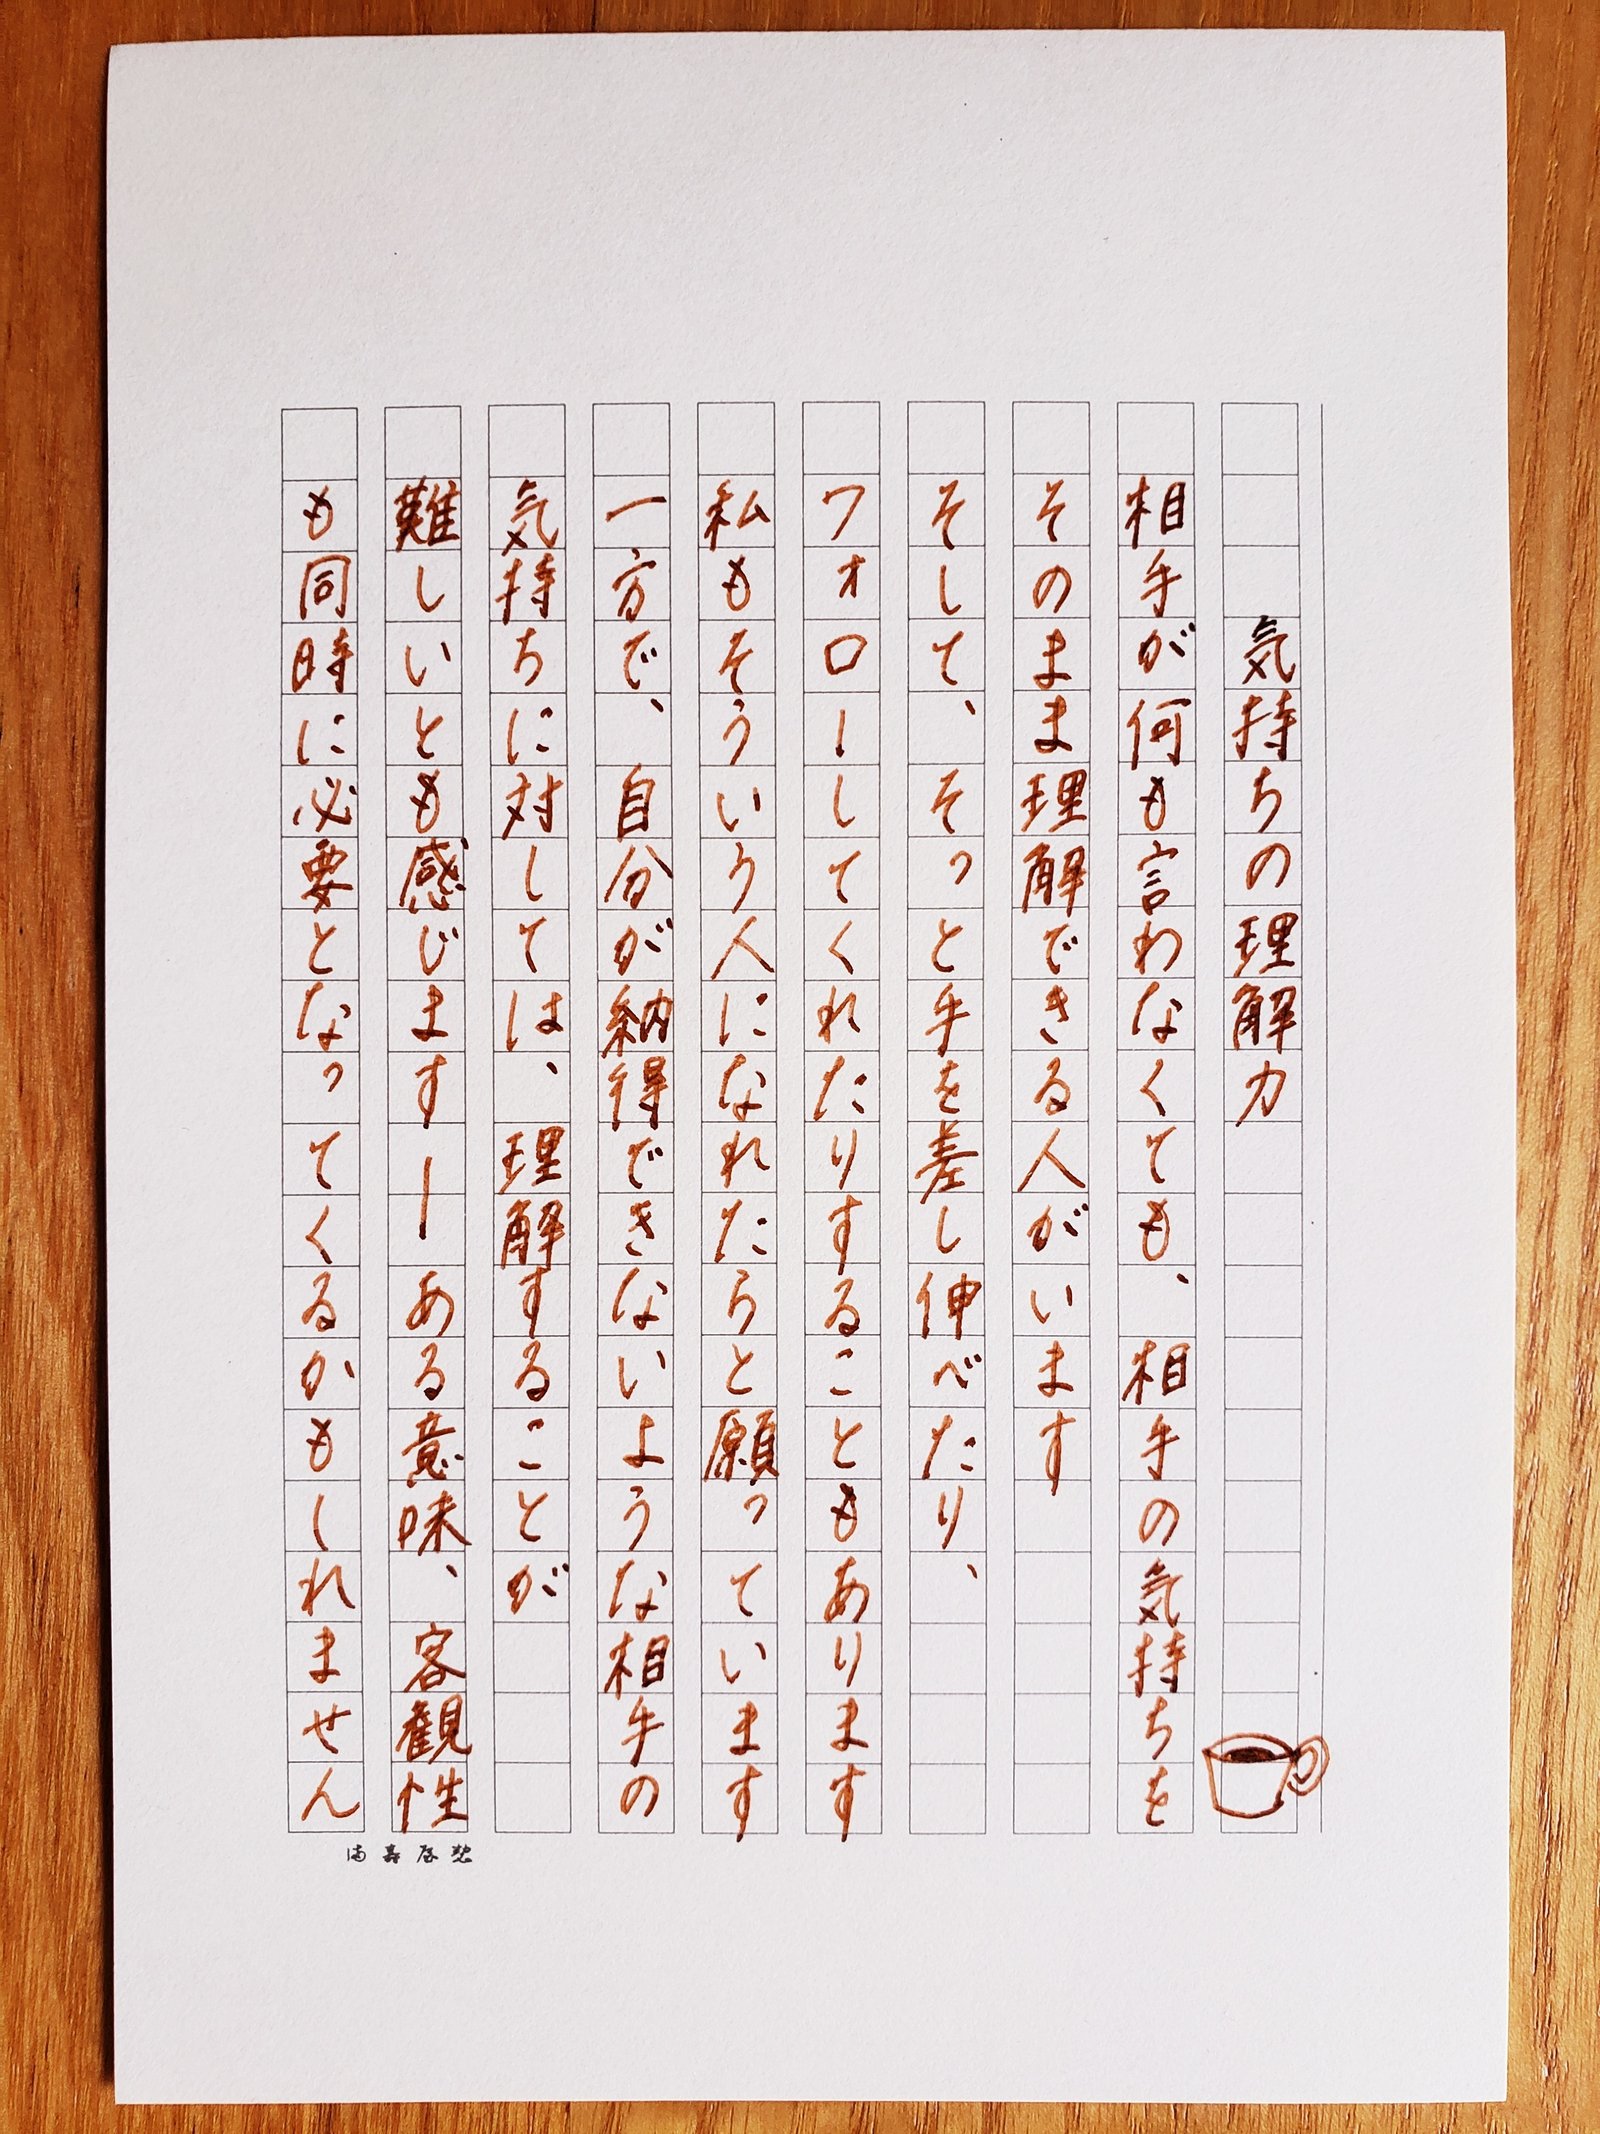 気持ちの理解力
相手が何も言わなくても、相手の気持ちを
そのまま理解できる人がいます
そして、そっと手を差し伸べたり、
フォローしてくれたりすることもあります
私もそういう人になれたらと願っています
一方で、自分が納得できないような相手の
気持ちに対しては、理解することが
難しいとも感じます――ある意味、客観性
も同時に必要となってくるかもしれません